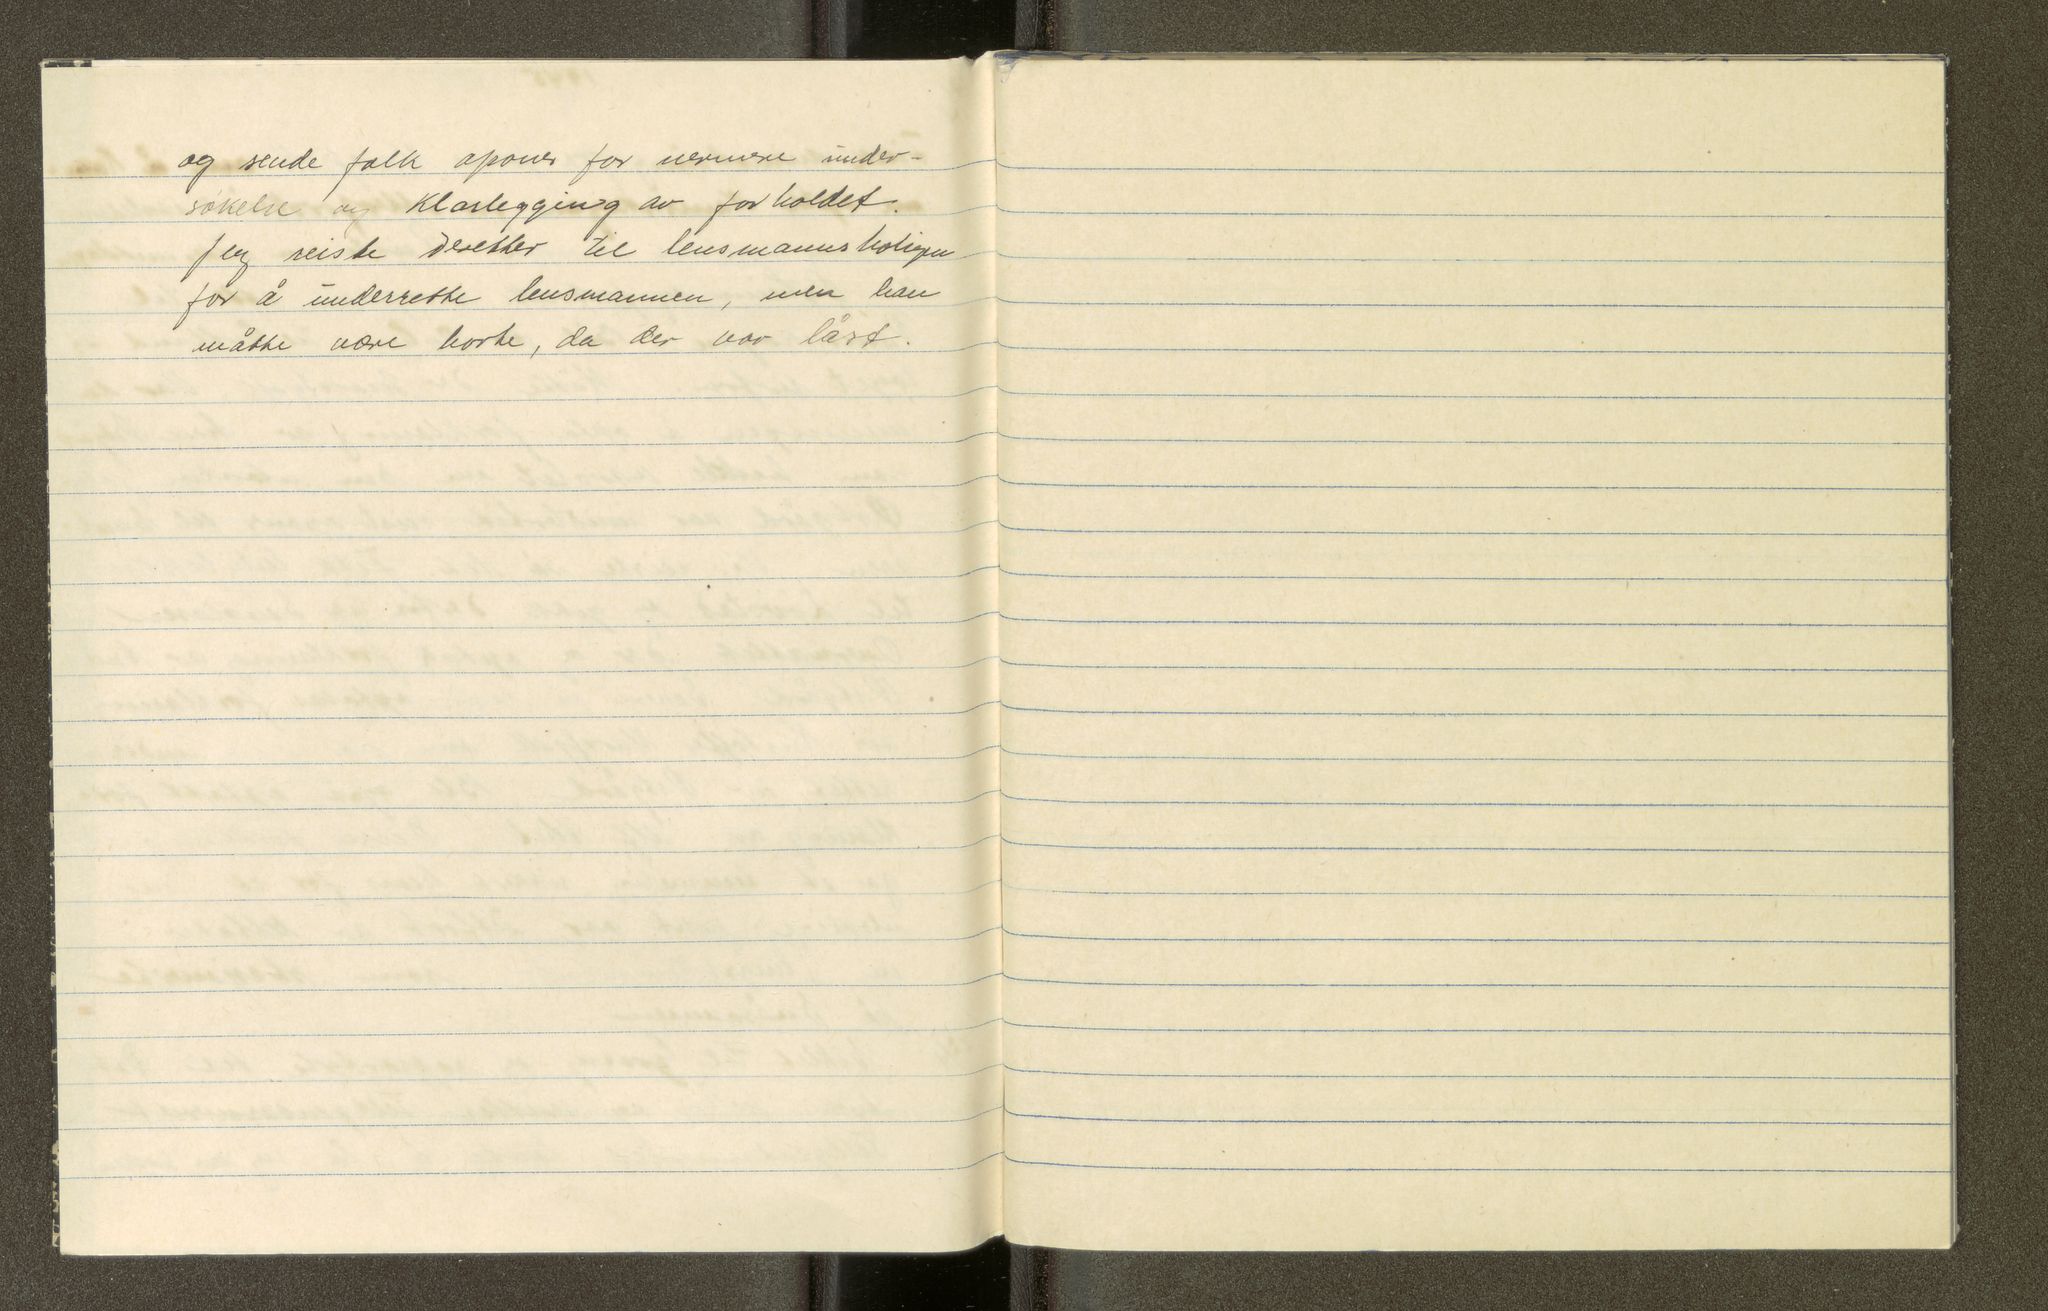 og sende folk opover for nermere under-
søkelse og Klarlegging av forholdet.
Jeg reiste deretter til lensmannsboligen
for å underrette lensmannen, men han
måtte være borte, da der var låst.